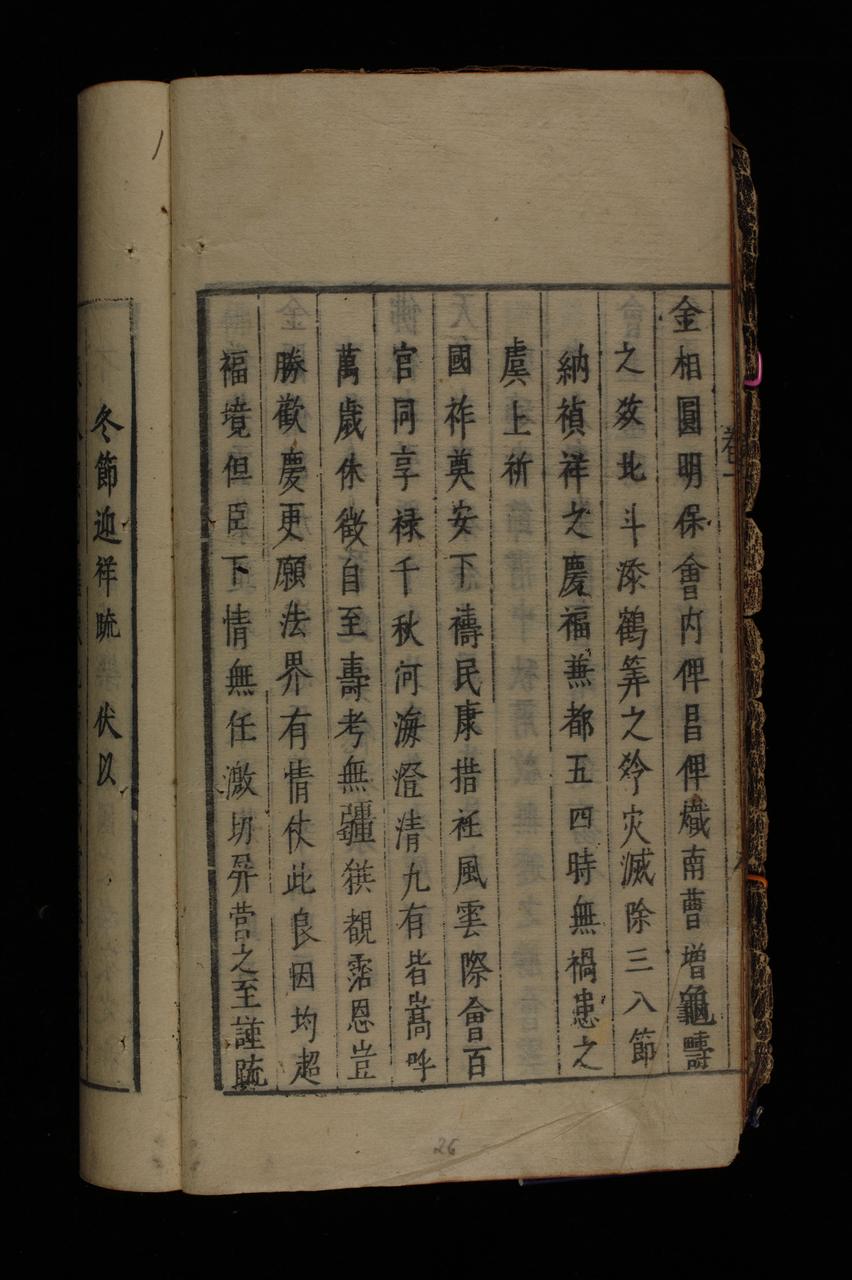 卷一
金相圓明保會内俾昌俾熾南曹增龜疇
之效北斗添鶴筭之齡灾滅除三八節
納禎祥之慶福兼都五四時無禍患之
虞上祈
國祚奠安下禱民康措袵風雲際會百
官同享禄千秋河海澄清九有皆嵩呼
萬歲休徵自至壽考無疆獲覩霑恩豈
勝歡慶更願法界有情仗此良因均超
福境但臣下情無任激切屏營之至謹䟽
冬節迎祥䟽 伏以